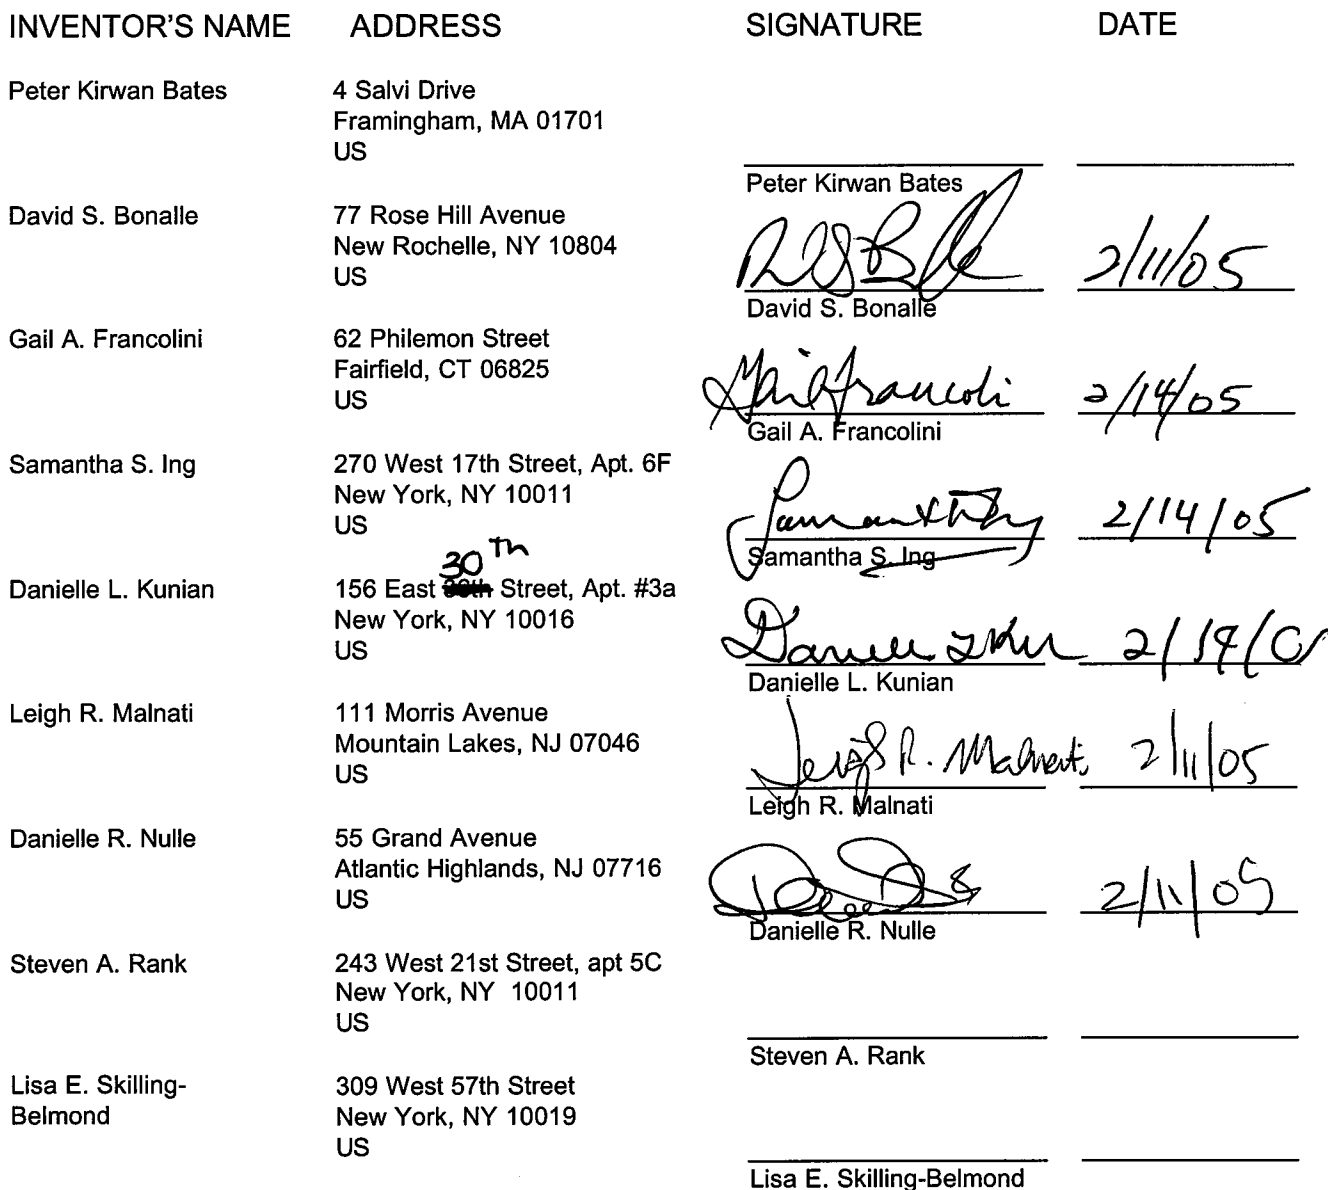 INVENTOR'S NAME ADDRESS SIGNATURE DATE
Peter Kirwan Bates 4 Salvi Drive
Framingham, MA 01701
US
Peter Kirwan Bates
David S. Bonalle 77 Rose Hill Avenue
New Rochelle, NY 10804
US
2/11/05
David S. Bonalle
Gail A. Francolini 62 Philemon Street
Fairfield, CT 06825
US
Gail A Francoli 2/14/05
Gail A. Francolini
Samantha S. Ing 270 West 17th Street, Apt. 6F
New York, NY 10011
US
Samantha Ing 2/14/05
Samantha S. Ing
30th
Danielle L. Kunian 156 East Street, Apt. #3a
New York, NY 10016
US
Danielle L Kun 2/14/0
Danielle L. Kunian
Leigh R. Malnati 111 Morris Avenue
Mountain Lakes, NJ 07046
US
Leigh R. Malnati 2/11/05
Leigh R. Malnati
Danielle R. Nulle 55 Grand Avenue
Atlantic Highlands, NJ 07716
US
2/11/05
Danielle R. Nulle
Steven A. Rank 243 West 21st Street, apt 5C
New York, NY 10011
US
Steven A. Rank
Lisa E. Skilling- 309 West 57th Street
Belmond New York, NY 10019
US
Lisa E. Skilling-Belmond